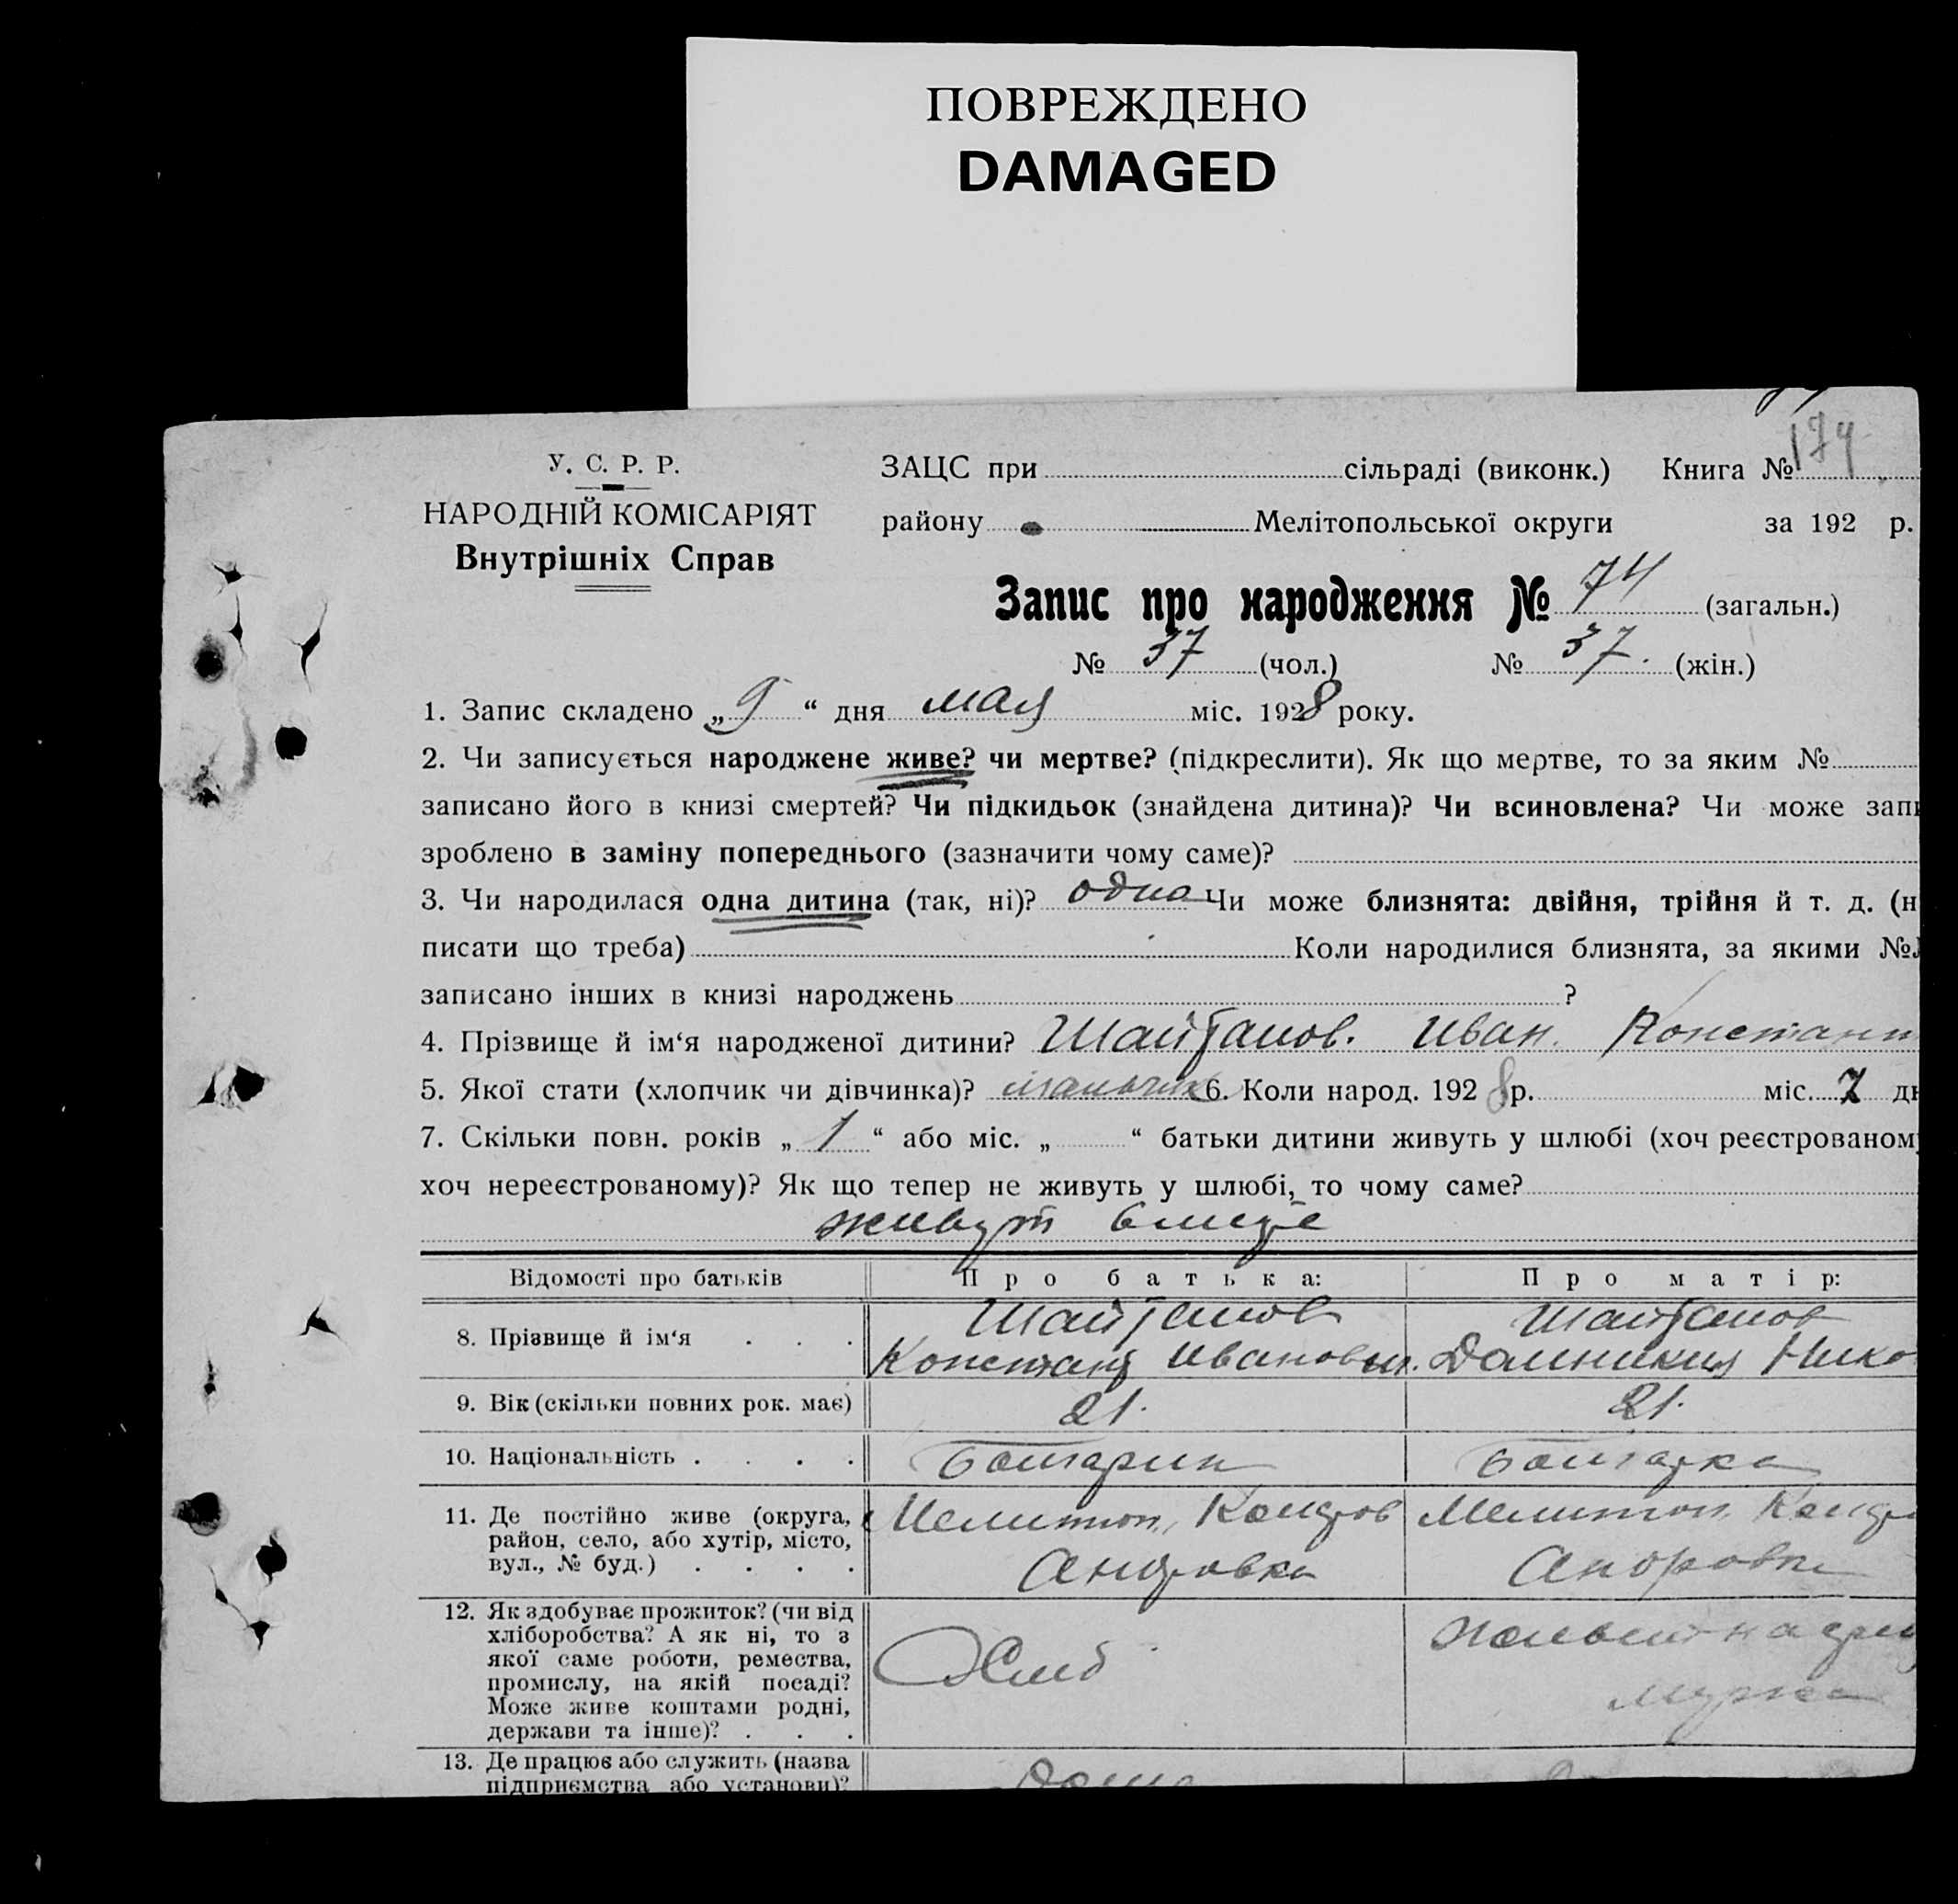 ПОВРЕЖДЕНО
DAMAGED
174
У. С. Р. Р.
НАРОДНІЙ КОМІСАРІЯТ
Внутрішніх Справ
ЗАЦС при сільраді (виконк.) Книга №
району Мелітопольської округи за 192 р.
Запис про народження № 74 (загальн.)
№ 37 (чол.) № 37. (жін.)
1. Запис складено „ 9 “ дня мая міс. 1928 року.
2. Чи записується народжене живе? чи мертве? (підкреслити). Як що мертве, то за яким №
записано його в книзі смертей? Чи підкидьок (знайдена дитина)? Чи всиновлена? Чи може запи
зроблено в заміну попереднього (зазначити чому саме)?
3. Чи народилася одна дитина (так, ні)? одна Чи може близнята: двійня, трійня й т. д. (н
писати що треба) Коли народилися близнята, за якими №№
записано інших в книзі народжень ?
4. Прізвище й ім‘я народженої дитини? Шайтанов. Иван. Констант
5. Якої стати (хлопчик чи дівчинка)? мальчик 6. Коли народ. 1928 р. міс. 7 дн
7. Скільки повн. років „ 1 “ або міс. „ “ батьки дитини живуть у шлюбі (хоч реєстрованому
хоч нереєстрованому)? Як що тепер не живуть у шлюбі, то чому саме?
живут вместе
Відомості про батьків Про батька: Про матір:
8. Прізвище й ім‘я . . . Шайтанов Шайтанов
Констант Иванович. Домникия Нико
9. Вік (скільки повних рок. має) 21. 21.
10. Національність . . . . Болгарин Болгарка
11. Де постійно живе (округа, район, село, або хутір, місто, вул., № буд.) . . . . Мелитоп, Андровка Мелитоп. Андровка
12. Як здобуває прожиток? (чи від хліборобства? А як ні, то з якої саме роботи, ремества, промислу, на якій посаді? Може живе коштами родні, держави та інше)? . . . Хлеб мужа
13. Де працює або служить (назва
підприємства або установи)?